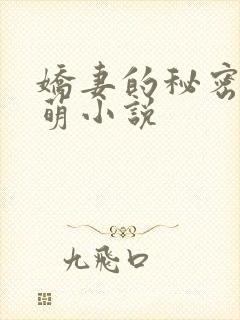 嬌妻的秘密
萌小説
九飛口